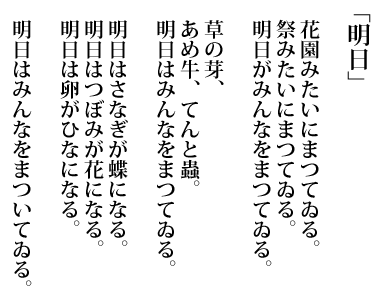 「明日」
花園みたいにまつてゐる。
祭みたいにまつてゐる。
明日がみんなをまつてゐる。
草の芽、
あめ牛、てんと蟲。
明日はみんなをまつてゐる。
明日はさなぎが蝶になる。
明日はつぼみが花になる。
明日は卵がひなになる。
明日はみんなをまついてゐる。